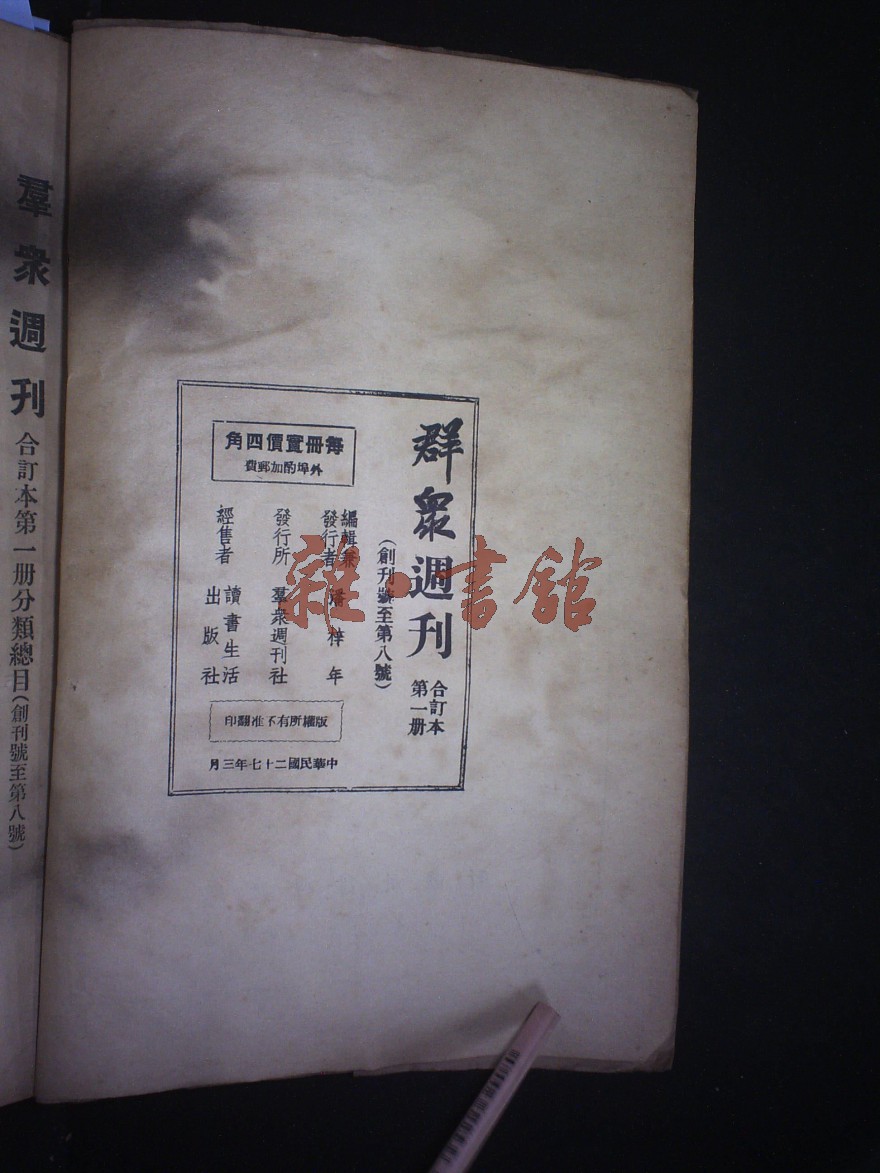 群衆週刊
合訂本
第一册
(創刊號至第八號)
編輯兼
發行者
潘梓年
發行所 羣衆週刊社
經售者
讀書生活
出版社
每冊實價四角
外埠酌加郵費
版權所有不准翻印
中華民國二十七年三月
羣衆週刊合訂本第一册分類總目(創刊號至第八號)
雜·書館